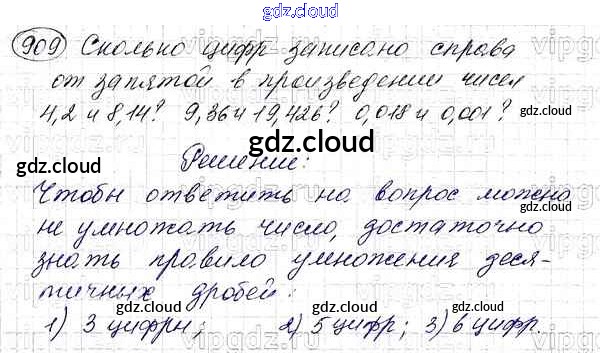 gdz.cloud
909 Сколько цифр записано справа
от запятой в произведении чисел
4,2 и 8,14? 9,36 и 19,426? 0,018 и 0,001?
gdz.cloud
gdz.cloud
gdz.cloud
Решение:
gdz.cloud
gdz.cloud
Чтобы ответить на вопрос можно
не умножать числа, достаточно
знать правило умножения деся-
тичных дробей:
gdz.cloud
gdz.cloud
gdz.cloud
1) 3 цифры; 2) 5 цифр; 3) 6 цифр.